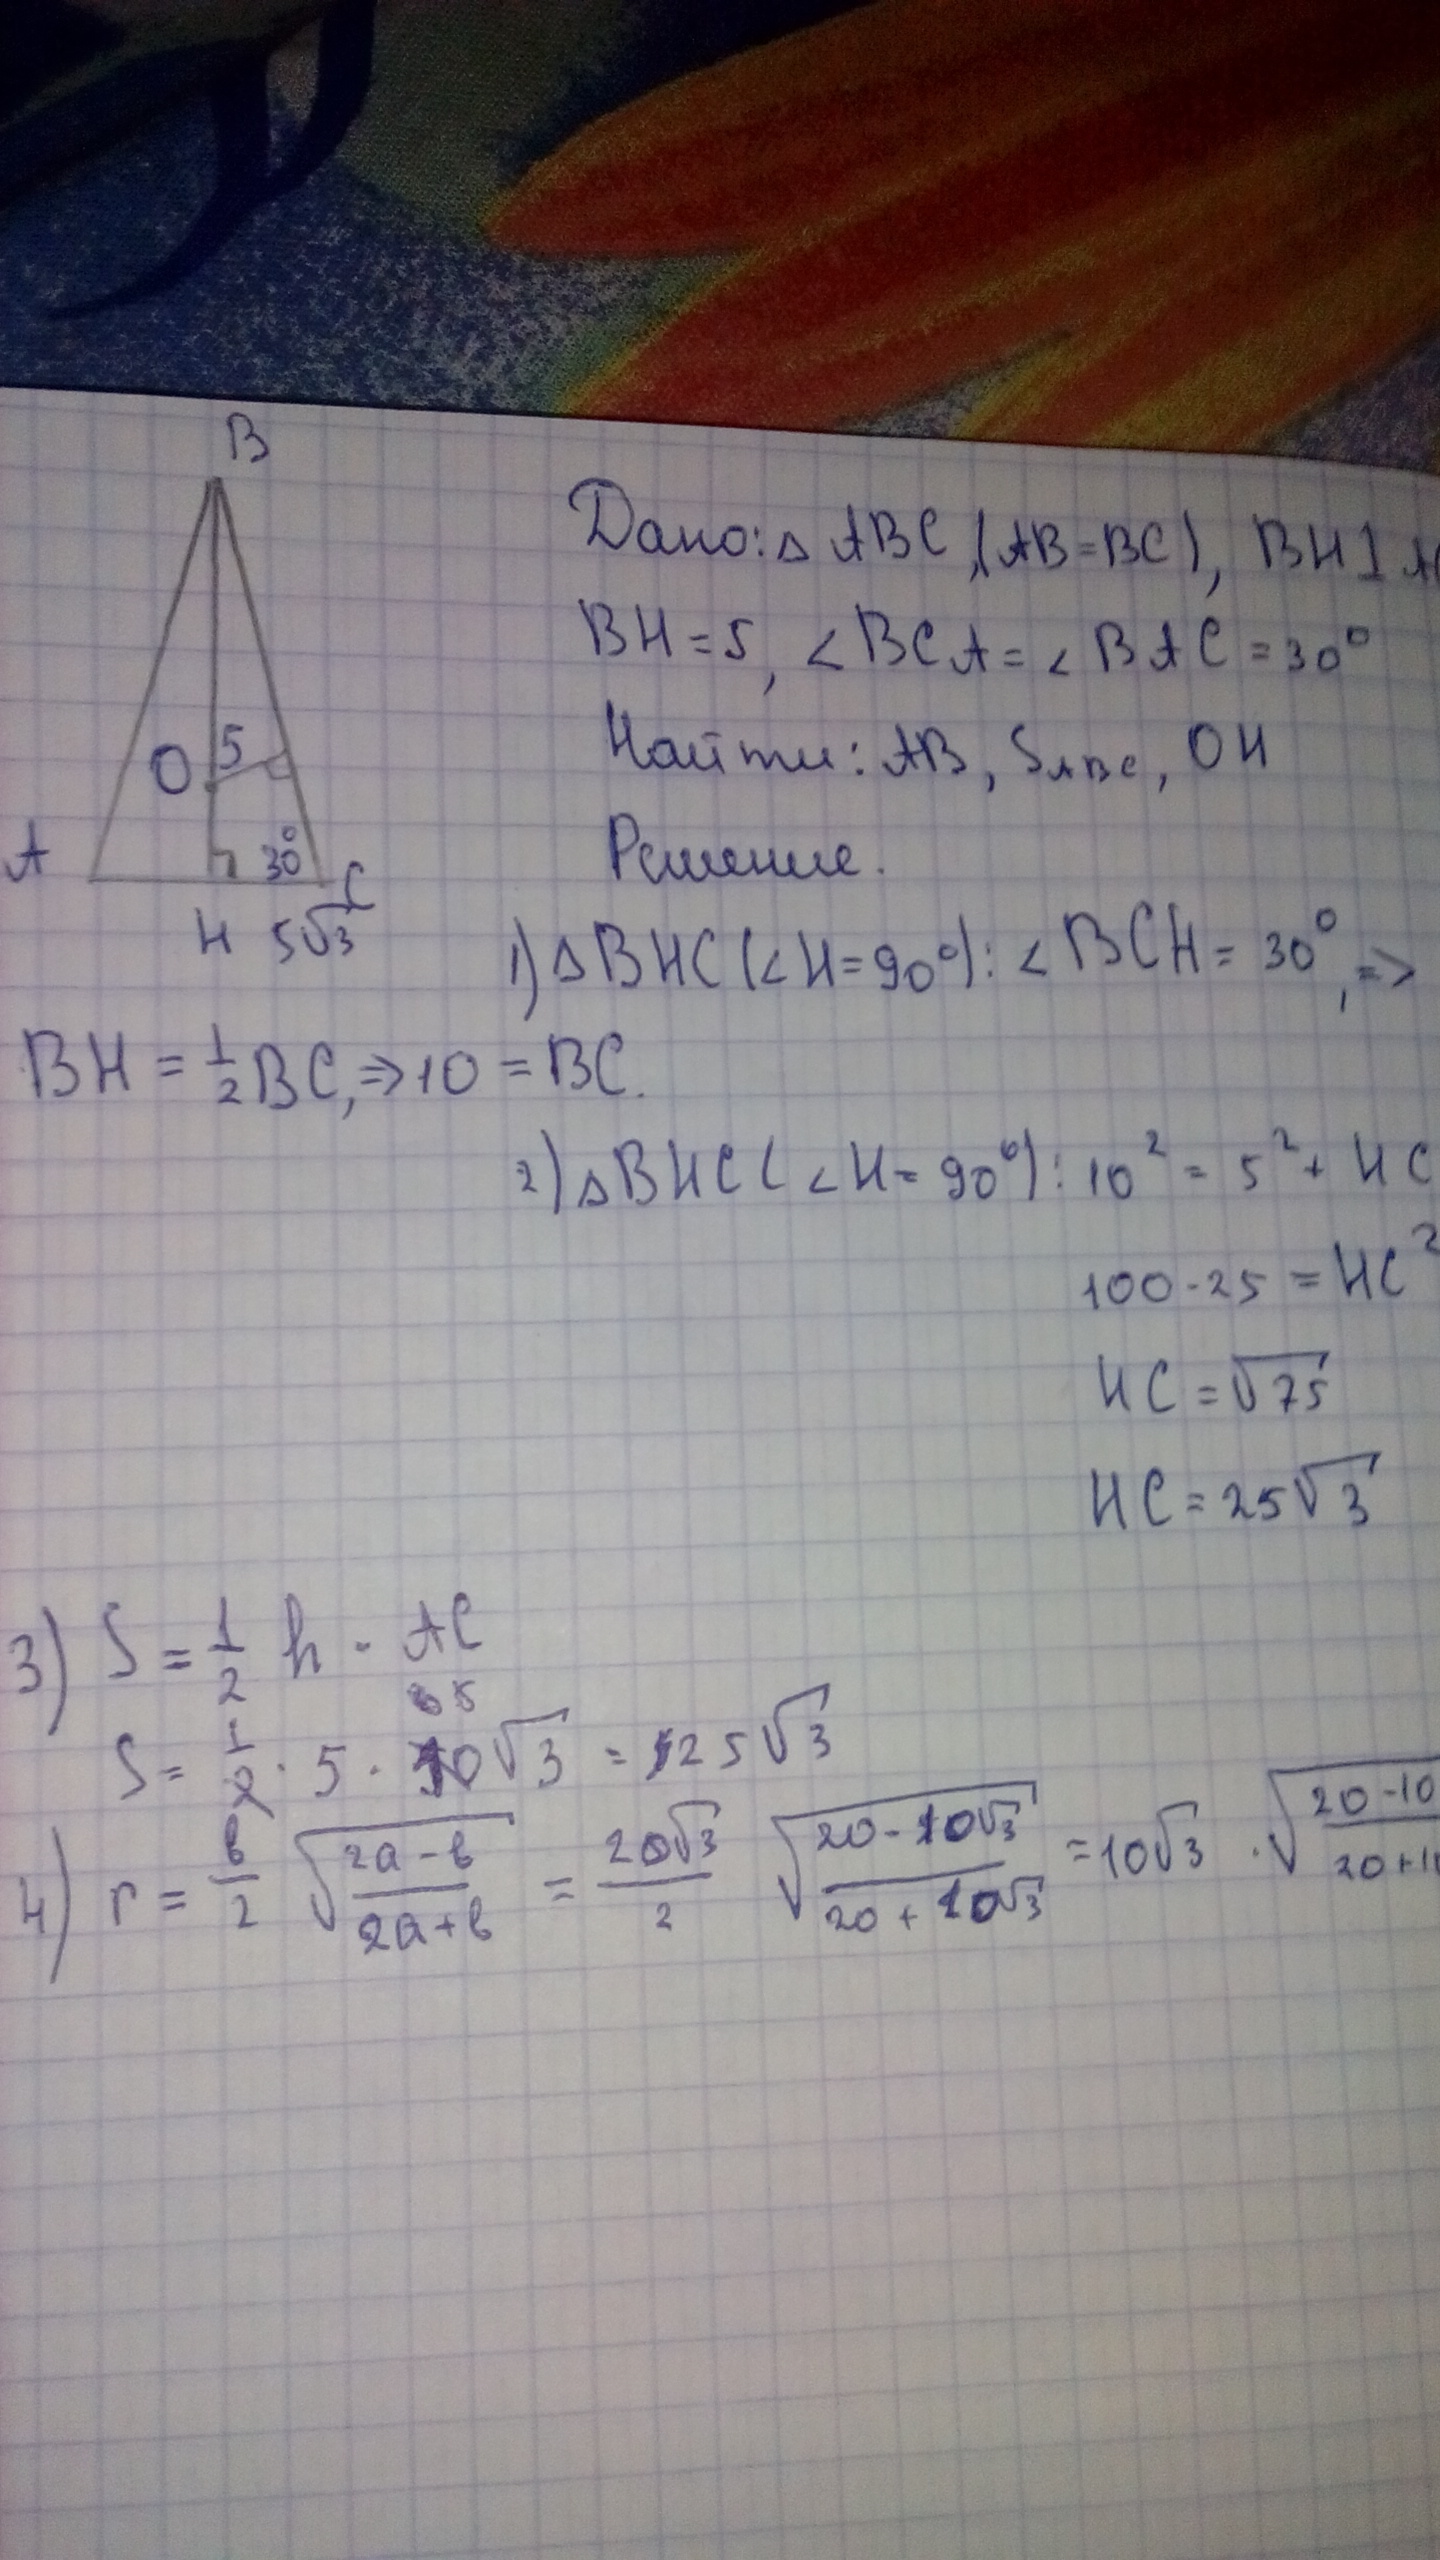 B
Дано: △ ABC, (AB=BC), BH⊥A
BH=5, ∠BCA=∠BAC=30°
O 5
Найти: AB, SABC, OH
A 30° C
Решение.
H 5√3
1) △BHC (∠H=90°): ∠BCH=30°, =>
BH = 1/2 BC, => 10 = BC.
2) △BHC (∠H=90°): 10² = 5² + HC
100-25 = HC²
HC = √75
HC = 25√3
3) S = 1/2 h · AC
S = 1/2 · 5 · 10√3 = 25√3
4) r = b/2 √((2a-b)/(2a+b)) = 20√3/2 √((20-10√3)/(20+10√3)) = 10√3 · √((20-10/(20+1